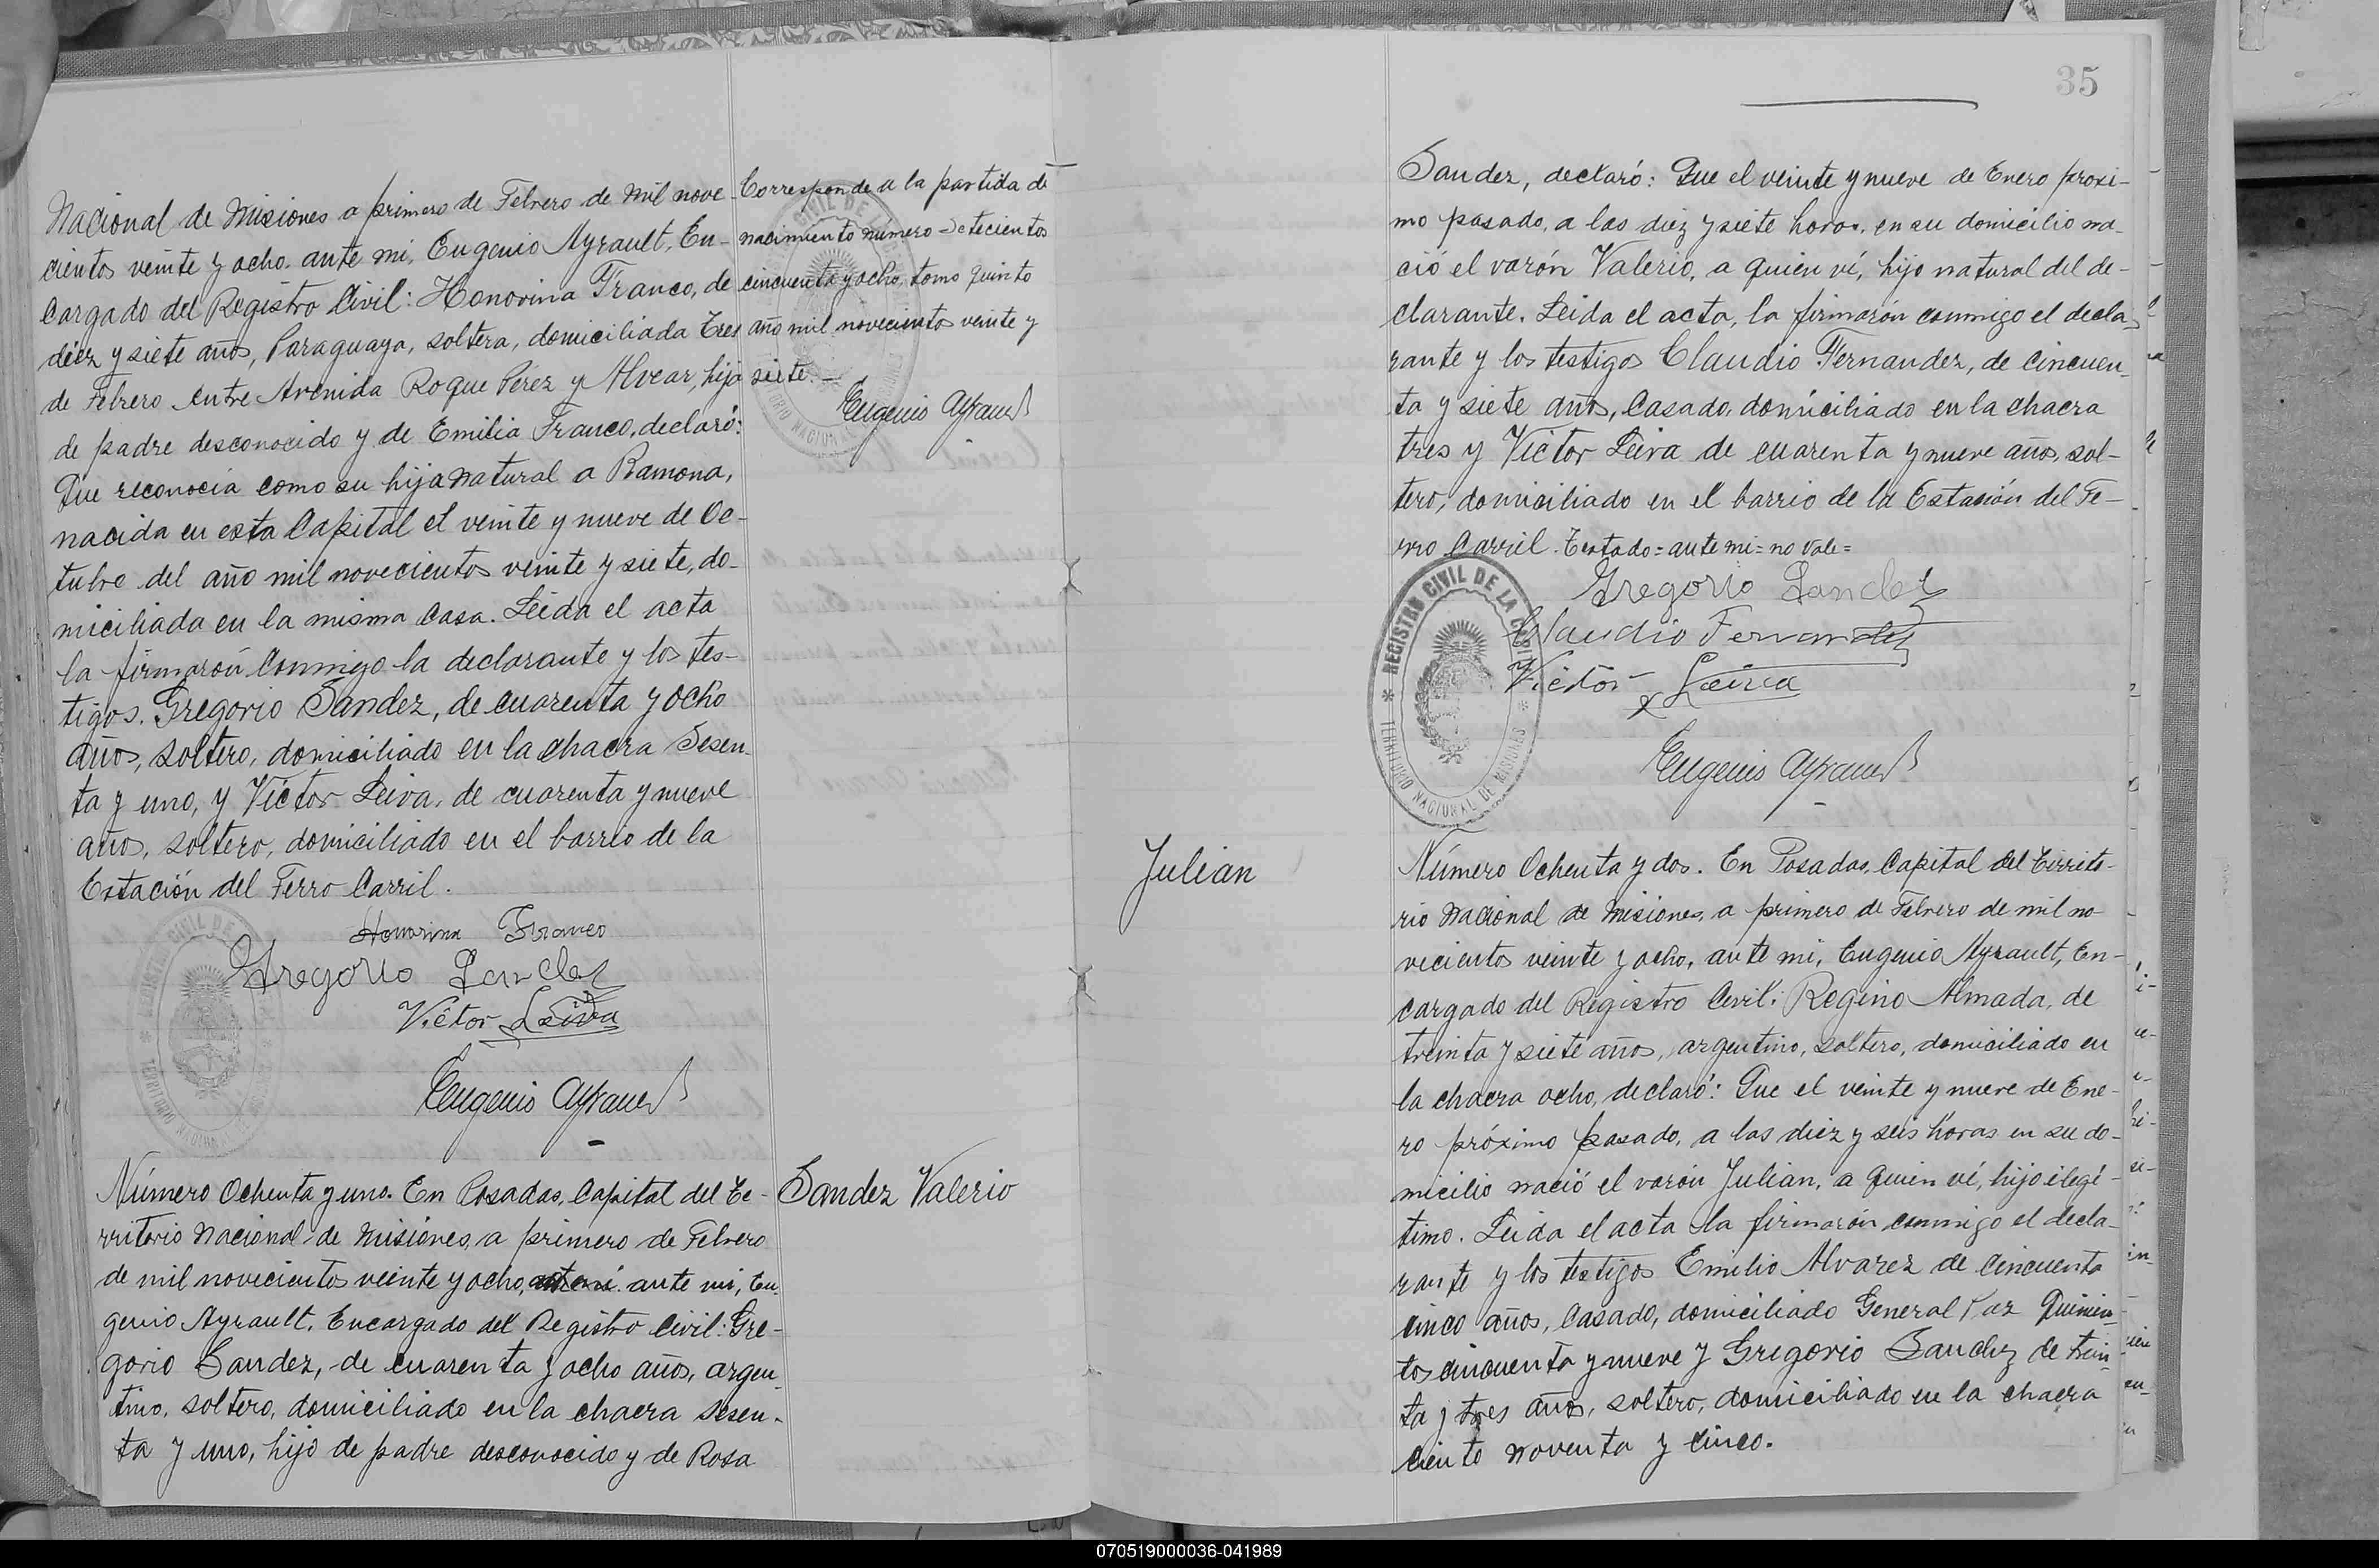 Nacional de Misiones a primero de Febrero de mil nove-
cientos veinte y ocho. ante mi, Eugenio Ayrault, En-
cargado del Registro Civil: Honorina Franco, de
diez y siete años, Paraguaya, soltera, domiciliada Tres
de Febrero entre Avenida Roque Pérez y Alvear, hija
de padre desconocido y de Emilia Franco, declaró:
Que reconocia como su hija natural a Ramona,
nacida en esta Capital el veinte y nueve de Oc-
tubre del año mil novecientos veinte y siete, do-
miciliada en la misma casa. Leida el acta
la firmarón conmigo la declarante y los tes-
tigos. Gregorio Sandez, de cuarenta y ocho
años, soltero, domiciliado en la chacra sesen-
ta y uno, y Víctor Leiva, de cuarenta y nueve
años, soltero, domiciliado en el barrio de la
Estación del Ferro Carril.
Honorina Franco
Gregorio Sandez
Victor Leiva
Eugenio Ayrault
Corresponde a la partida de
nacimiento número setecientos
cincuenta y ocho, tomo quinto
año mil novecientos veinte y
siete.-
Eugenio Ayrault
Número Ochenta y uno. En Posadas, Capital del Te-
rritorio Nacional de Misiones, a primero de Febrero
de mil novecientos veinte y ocho, ante mi. ante mi, Eu-
genio Ayrault, Encargado del Registro Civil: Gre-
gorio Sandez, de cuarenta y ocho años, argen-
tino, soltero, domiciliado en la chacra sesen-
ta y uno, hijo de padre desconocido y de Rosa
Sandez Valerio
35
Sandez, declaró: Que el veinte y nueve de Enero proxi-
mo pasado, a las diez y siete horas, en su domicilio na-
ció el varón Valerio, a quien ví, hijo natural del de-
clarante. Leida el acta, la firmarón conmigo el decla-
rante y los testigos Claudio Fernandez, de cincuen-
ta y siete años, casado, domiciliado en la chacra
tres y Víctor Leiva de cuarenta y nueve años, sol-
tero, domiciliado en el barrio de la Estación del Fe-
rro Carril. Testado=ante mi=no vale=
Gregorio Sandez
Claudio Fernandez
Victor Leiva
Eugenio Ayrault
REGISTRO CIVIL DE LA CAPITAL
TERRITORIO NACIONAL DE MISIONES
Julian
Número Ochenta y dos. En Posadas, Capital del Territo-
rio Nacional de Misiones, a primero de Febrero de mil no-
vecientos veinte y ocho, ante mi, Eugenio Ayrault, En-
cargado del Registro Civil: Regino Almada, de
treinta y siete años, argentino, soltero, domiciliado en
la chacra ocho, declaró: Que el veinte y nueve de Ene-
ro próximo pasado, a las diez y seis horas en su do-
micilio nació el varón Julian, a quien ví, hijo ilegí-
timo. Leida el acta la firmarón conmigo el decla-
rante y los testigos Emilio Alvarez de cincuenta
cinco años, casado, domiciliado General Paz quinien-
tos cincuenta y nueve y Gregorio Sanchez de trein-
ta y tres años, soltero, domiciliado en la chacra
ciento noventa y cinco.
070519000036-041989